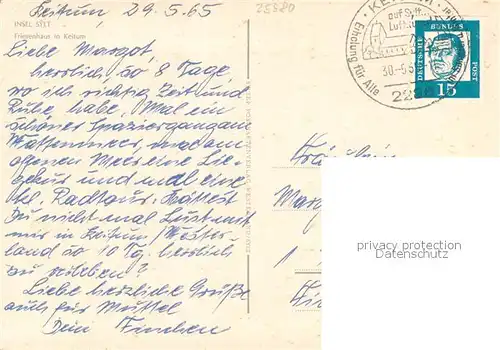 Keitum, 29.5.65
25380
INSEL SYLT
Friesenhaus in Keitum
Liebe Margot,
herrlich so 8 Tage,
wo ich richtig Zeit und
Ruhe habe. Mal ein
schöner Spaziergang am
Wattenmeer, mal am
offenen Meer eine Lie-
gekur und mal eine
kl. Radtour. Hättest
Du nicht mal Lust mit
mir in Keitum / Wester
land so 10 Tg. herrlich
zu erleben?
Liebe herzliche Grüße
auch für Mutter
Dein Finchen
KEITUM
auf Sylt
Luftkurort
Erholung für Alle
30.-5.
DEUTSCHE
BUNDES
POST
15
Fräulein
privacy protection
Datenschutz